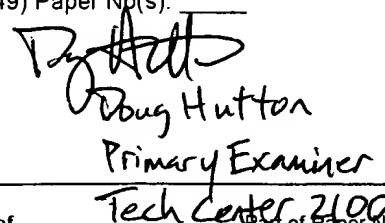 49) Paper No(s).
Doug Hutton
Primary Examiner
Tech Center 2100
of